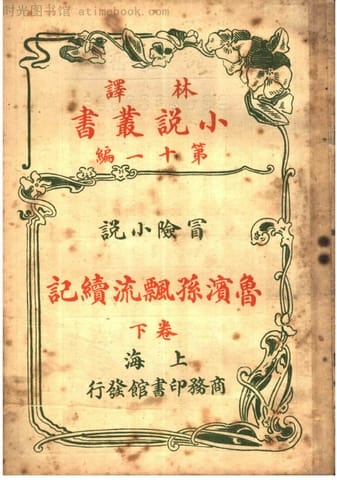 时光图书馆 atimebook.com
林譯
小說叢書
第十一編
冐險小說
魯濱孫飄流續記
卷下
上海
商務印書館發行